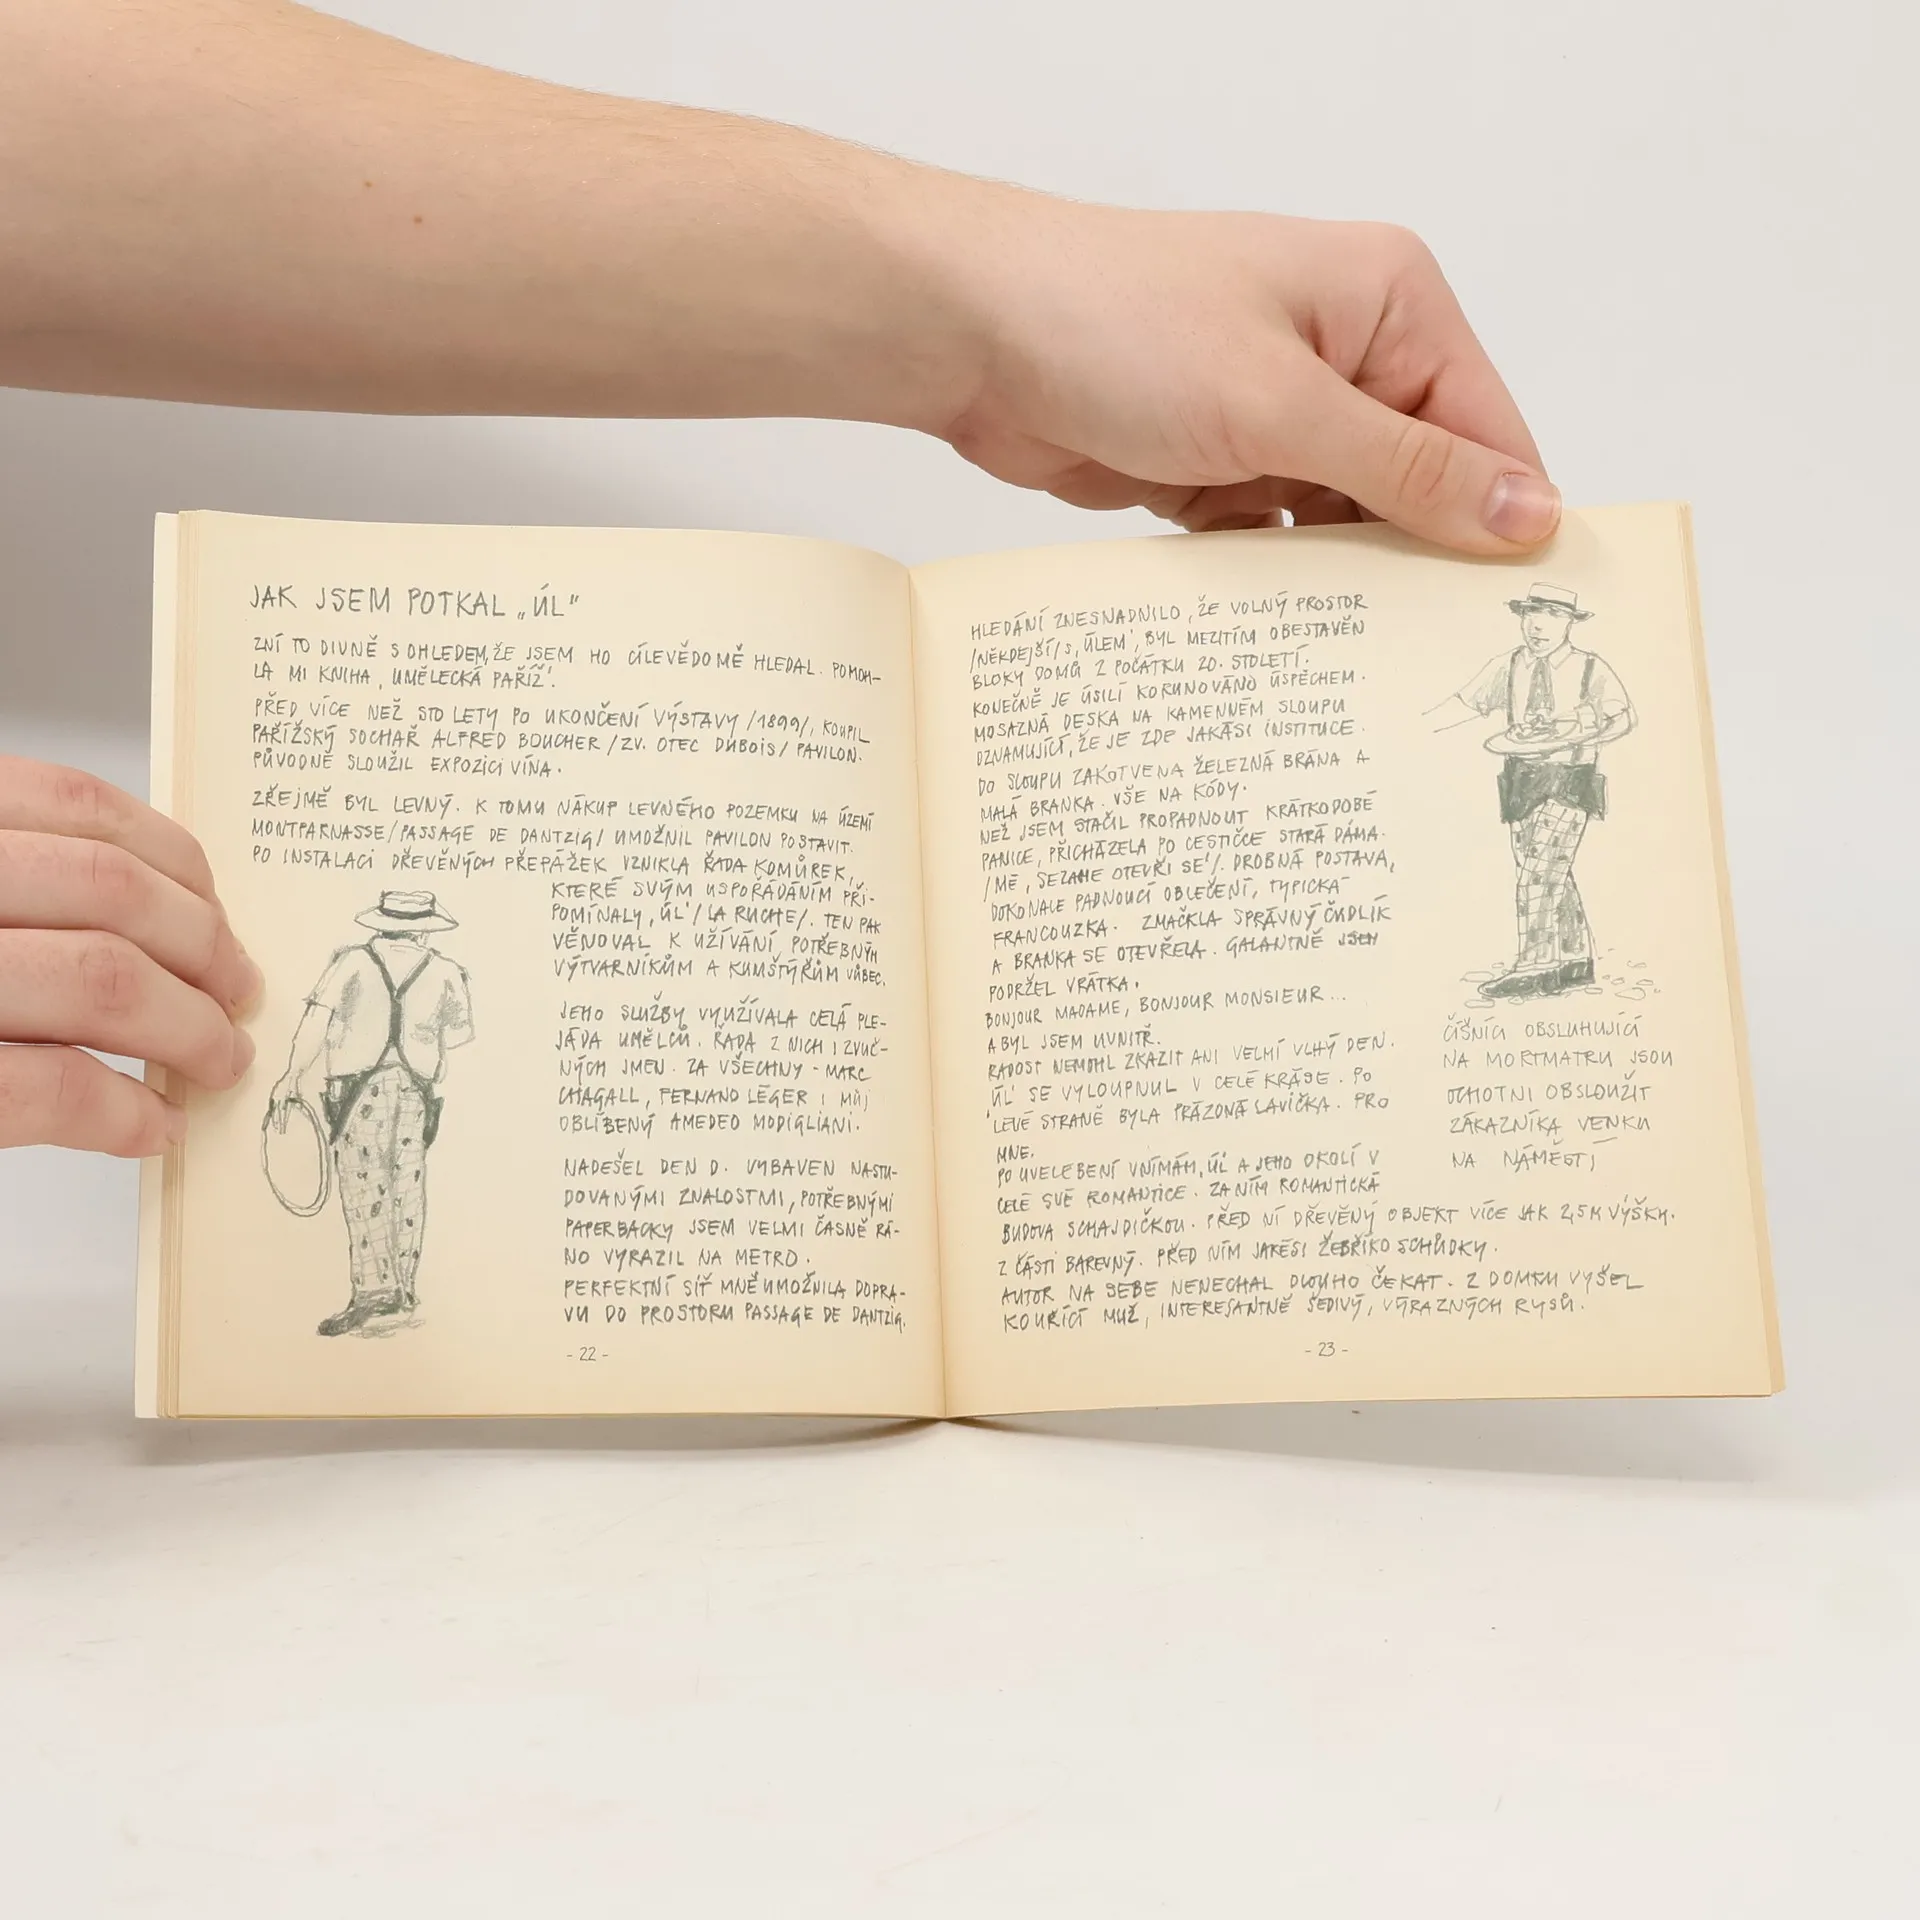 JAK JSEM POTKAL „ÚL"
ZNÍ TO DIVNĚ S OHLEDEM, ŽE JSEM HO CÍLEVĚDOMĚ HLEDAL. POMOH-
LA MI KNIHA ‚UMĚLECKÁ PAŘÍŽ'.
PŘED VÍCE NEŽ STO LETY PO UKONČENÍ VÝSTAVY /1899/, KOUPIL
PAŘÍŽSKÝ SOCHAŘ ALFRED BOUCHER /ZV. OTEC DUBOIS/ PAVILON.
PŮVODNĚ SLOUŽIL EXPOZICI VÍNA.
ZŘEJMĚ BYL LEVNÝ. K TOMU NÁKUP LEVNÉHO POZEMKU NA ÚZEMÍ
MONTPARNASSE/PASSAGE DE DANTZIG/ UMOŽNIL PAVILON POSTAVIT.
PO INSTALACI DŘEVĚNÝCH PŘEPÁŽEK VZNIKLA ŘADA KOMŮREK,
KTERÉ SVÝM USPOŘÁDÁNÍM PŘI-
POMÍNALY ‚ÚL'/LA RUCHE/. TEN PAK
VĚNOVAL K UŽÍVÁNÍ POTŘEBNÝM
VÝTVARNÍKŮM A KUMŠTÝŘŮM VŮBEC.
JEHO SLUŽBY VYUŽÍVALA CELÁ PLE-
JÁDA UMĚLCŮ. ŘADA Z NICH I ZVUČ-
NÝCH JMEN. ZA VŠECHNY - MARC
CHAGALL, FERNAND LÉGER I MŮJ
OBLÍBENÝ AMEDEO MODIGLIANI.
NADEŠEL DEN D. VYBAVEN NASTU-
DOVANÝMI ZNALOSTMI, POTŘEBNÝMI
PAPERBACKY JSEM VELMI ČASNĚ RÁ-
NO VYRAZIL NA METRO.
PERFEKTNÍ SÍŤ MNĚ UMOŽNILA DOPRA-
VU DO PROSTORU PASSAGE DE DANTZIG.
- 22 -
HLEDÁNÍ ZNESNADNILO, ŽE VOLNÝ PROSTOR
/NĚKDEJŠÍ/ S ‚ÚLEM' BYL MEZITÍM OBESTAVĚN
BLOKY DOMŮ Z POČÁTKU 20. STOLETÍ.
KONEČNĚ JE ÚSILÍ KORUNOVÁNO ÚSPĚCHEM.
MOSAZNÁ DESKA NA KAMENNÉM SLOUPU
OZNAMUJÍCÍ, ŽE JE ZDE JAKÁSI INSTITUCE.
DO SLOUPU ZAKOTVENA ŽELEZNÁ BRÁNA A
MALÁ BRANKA. VŠE NA KÓDY.
NEŽ JSEM STAČIL PROPADNOUT KRÁTKODOBÉ
PANICE, PŘICHÁZELA PO CESTIČCE STARÁ DÁMA.
/MÉ ‚SEZAME OTEVŘI SE'/. DROBNÁ POSTAVA,
DOKONALE PADNOUCÍ OBLEČENÍ, TYPICKÁ
FRANCOUZKA. ZMAČKLA SPRÁVNÝ ČUDLÍK
A BRANKA SE OTEVŘELA. GALANTNĚ JSEM
PODRŽEL VRÁTKA.
BONJOUR MADAME, BONJOUR MONSIEUR...
A BYL JSEM UVNITŘ.
RADOST NEMOHL ZKAZIT ANI VELMI VLHÝ DEN.
‚ÚL' SE VYLOUPNUL V CELÉ KRÁSE. PO
LEVÉ STRANĚ BYLA PRÁZDNÁ LAVIČKA. PRO
MNE.
PO UVELEBENÍ VNÍMÁM ‚ÚL' A JEHO OKOLÍ V
CELÉ SVÉ ROMANTICE. ZA NÍM ROMANTICKÁ
BUDOVA SCHAJDIČKOU. PŘED NÍ DŘEVĚNÝ OBJEKT VÍCE JAK 2,5M VÝŠKY.
Z ČÁSTI BAREVNÝ. PŘED NÍM JAKÉSI ŽEBŘÍKO SCHŮDKY.
AUTOR NA SEBE NENECHAL DLOUHO ČEKAT. Z DOMKU VYŠEL
KOUŘÍCÍ MUŽ, INTERESANTNĚ ŠEDIVÝ, VÝRAZNÝCH RYSŮ.
- 23 -
ČÍŠNÍCI OBSLUHUJÍCÍ
NA MORTMATRU JSOU
OCHOTNI OBSLOUŽIT
ZÁKAZNÍKA VENKU
NA NÁMĚSTÍ